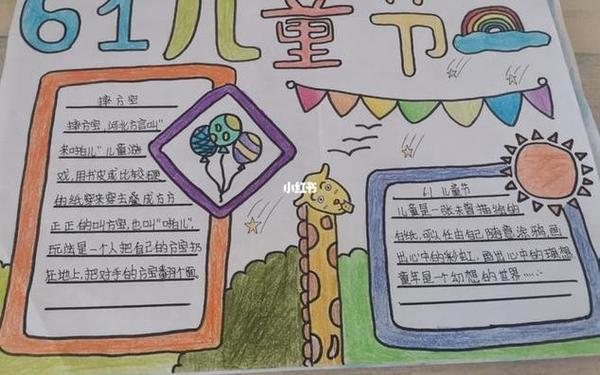 61儿童节
摔方宝
摔方宝,河北方言叫"
来啪儿"儿童游
戏,用书皮或比较硬
的纸穿来穿去叠成方方
正正的叫方宝,也叫"啪儿。
玩法是一个人把自己的方宝扔
在地上,把对手的方宝翻个面。
小红书
61儿童节
儿童是一张未曾描绘的
白纸,可以任由自己随意涂鸦画
出心中的彩虹,画出心中的理想
童年是一个幻想的世界……